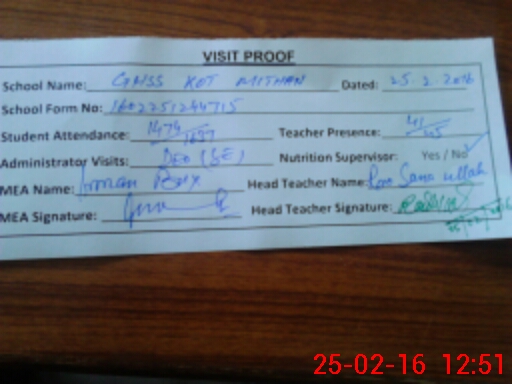 VISIT PROOF
School Name: GHSS KOT MITHAN Dated: 25.2.2016
School Form No: 1602251244715
Student Attendance: 1474/1697 Teacher Presence: 41/45
Administrator Visits: DEO (SE) Nutrition Supervisor: Yes / No
MEA Name: Imran Head Teacher Name: Sana ullah
MEA Signature: Head Teacher Signature:
25-02-16 12:51